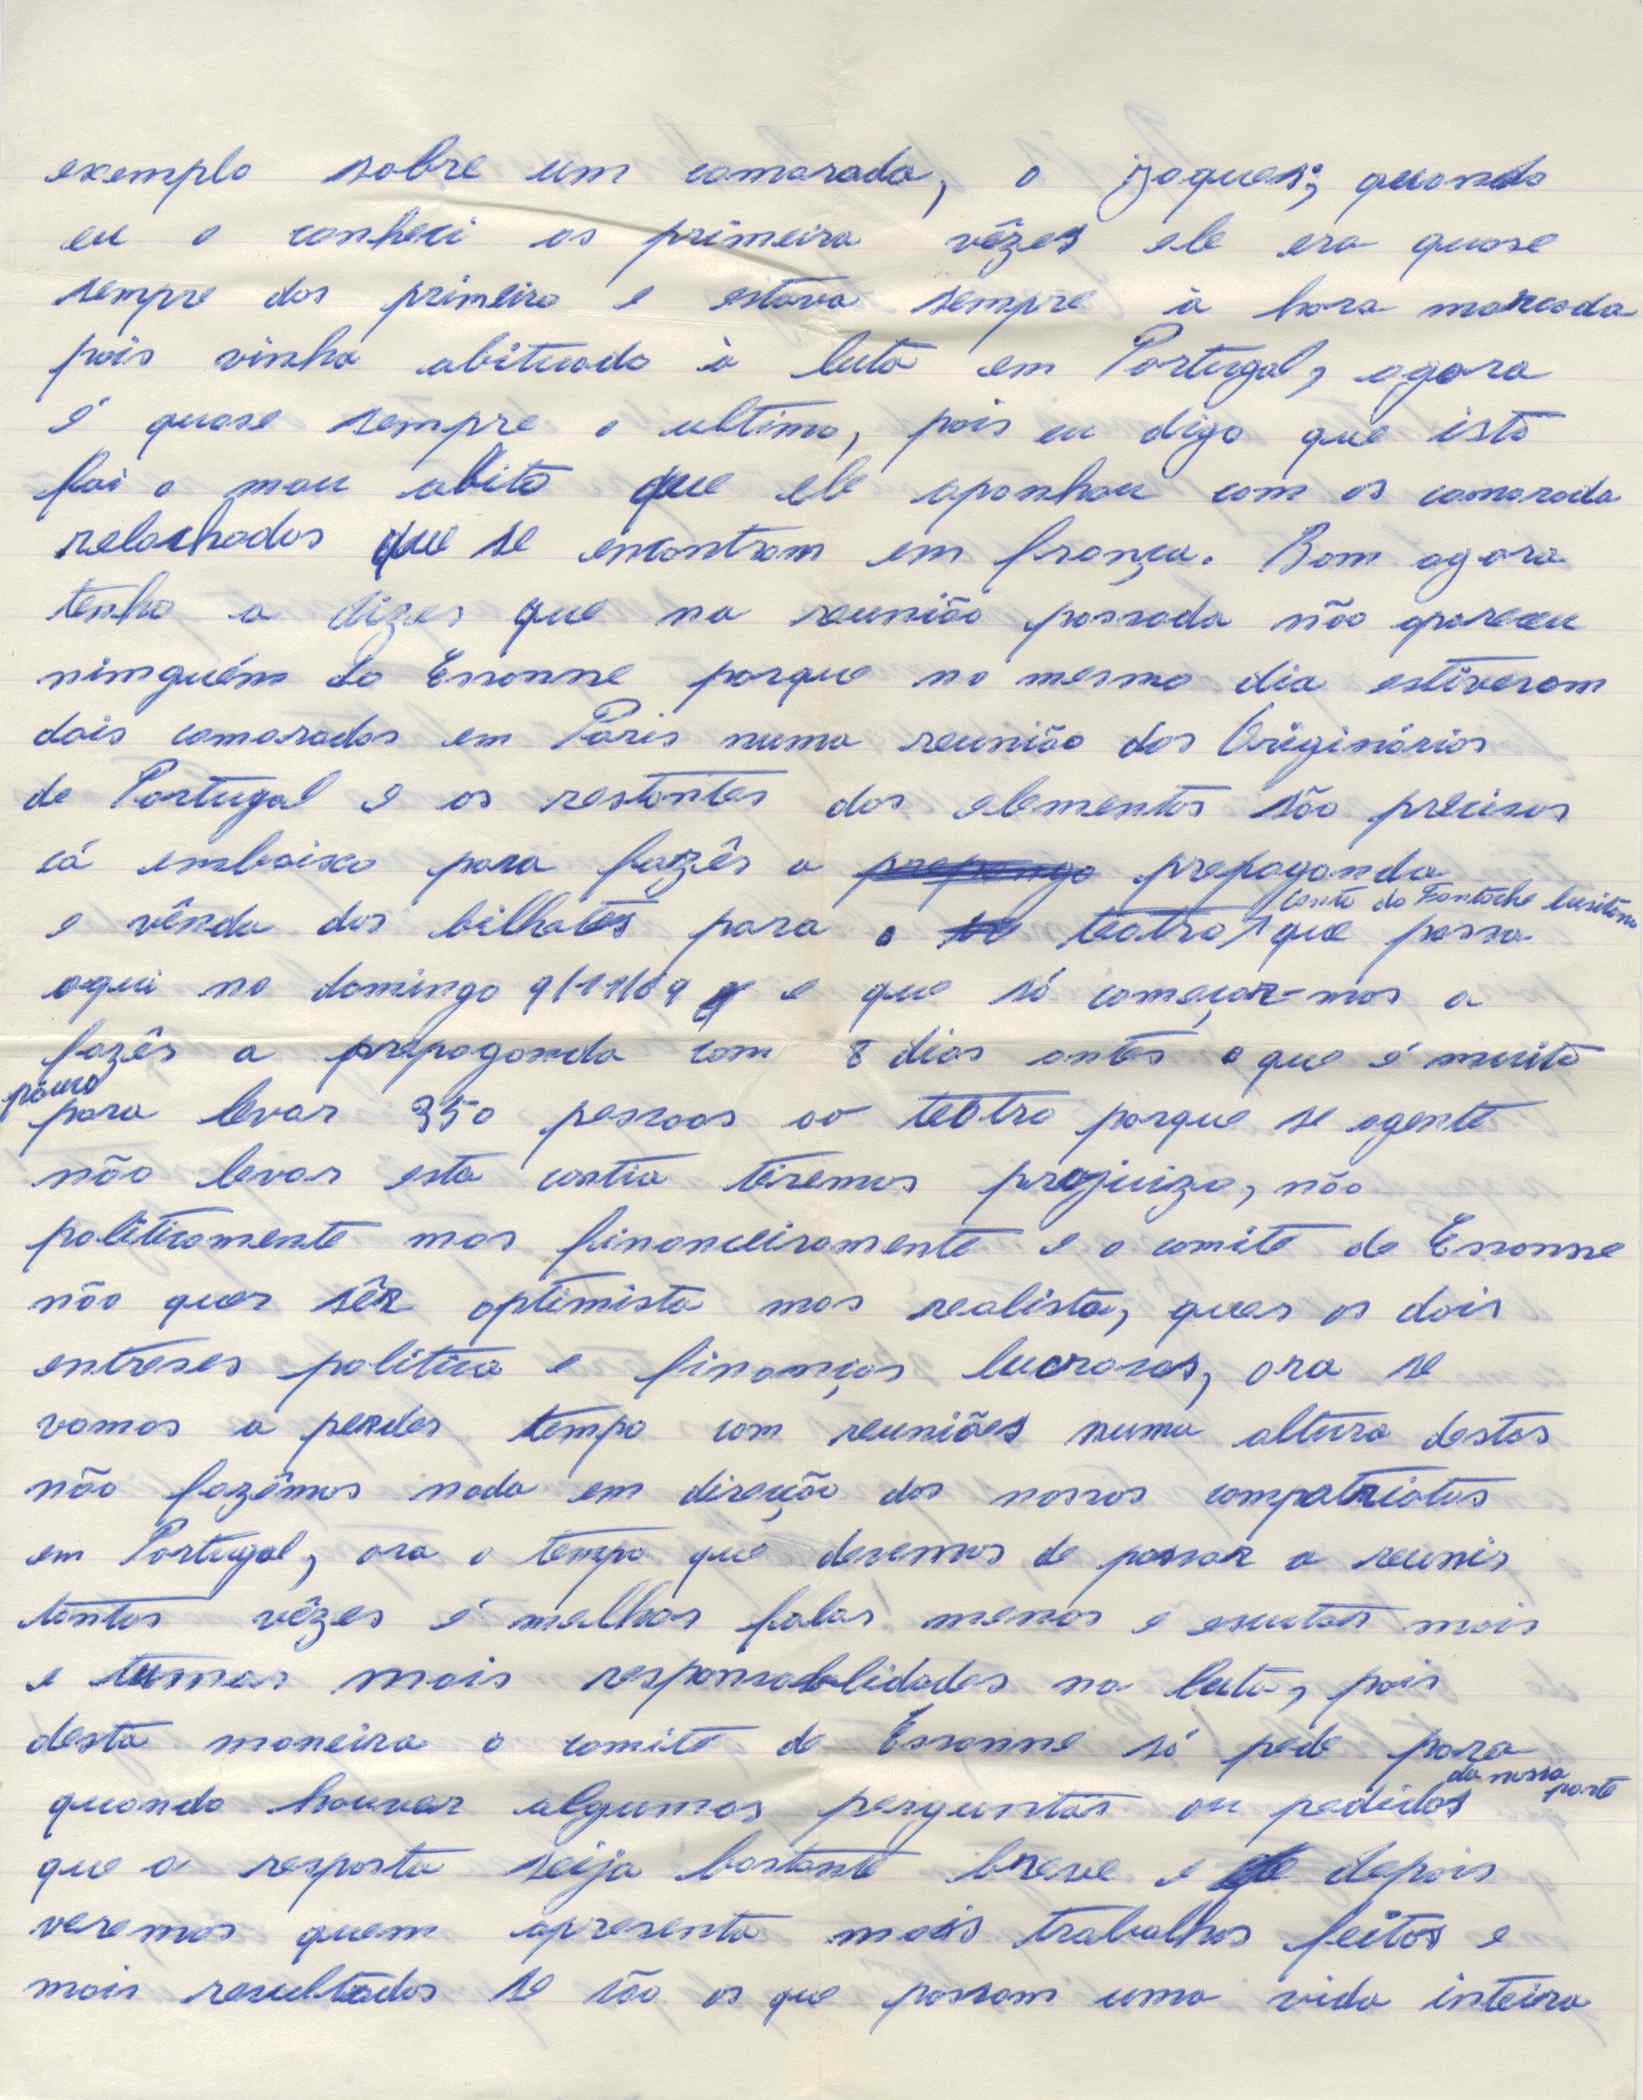 exemplo sobre um camarada, o Jaques; quando
eu o conheci as primeira vêzes ele era quase
sempre dos primeiro e estava sempre à hora marcada
pois vinha abituado à luta em Portugal, agora
é quase sempre o ultimo, pois eu digo que isto
foi o mau abito que ele apanhou com os camarada
relachados que se encontram em frança. Bom agora
tenho a dizer que na reunião passada não apareceu
nimguém do Essonne porque no mesmo dia estiveram
dois camarados em Paris numa reunião dos Originários
de Portugal e os restantes dos elementos são precisos
cá embaixo para fazêr a prepaganda
e vênda dos bilhates para o teatro canto do Fantoche lusitano que passa
aqui no domingo 9/11/69 e que só começar-mos a
fazêr a prepaganda com 8 dias antes o que é muito
pouco para levar 350 pessoas ao teatro porque se agente
não levar esta cantia tiremos prejuizo, não
politicamente mas financeiramente e o comite de Essonne
não quer sêr optimista mas realista, quer os dois
entreses politica e finanças lucrosas, ora se
vamos a perder tempo com reuniões numa altura destas
não fazêmos nada em direção dos nossos compatriotas
em Portugal, ora o tempo que devemos de passar a reunir
tantas vêzes é melhor falar menos e escutar mais
e tumar mais responsablidades na luta, pois
desta maneira o comite de Essonne só pede para
quando houver algumas perguntas ou pedidos da nossa parte
que a resposta seija bastante breve e depois
veremos quem apresenta mais trabalhos feitos e
mais resultados se são os que passam uma vida inteira